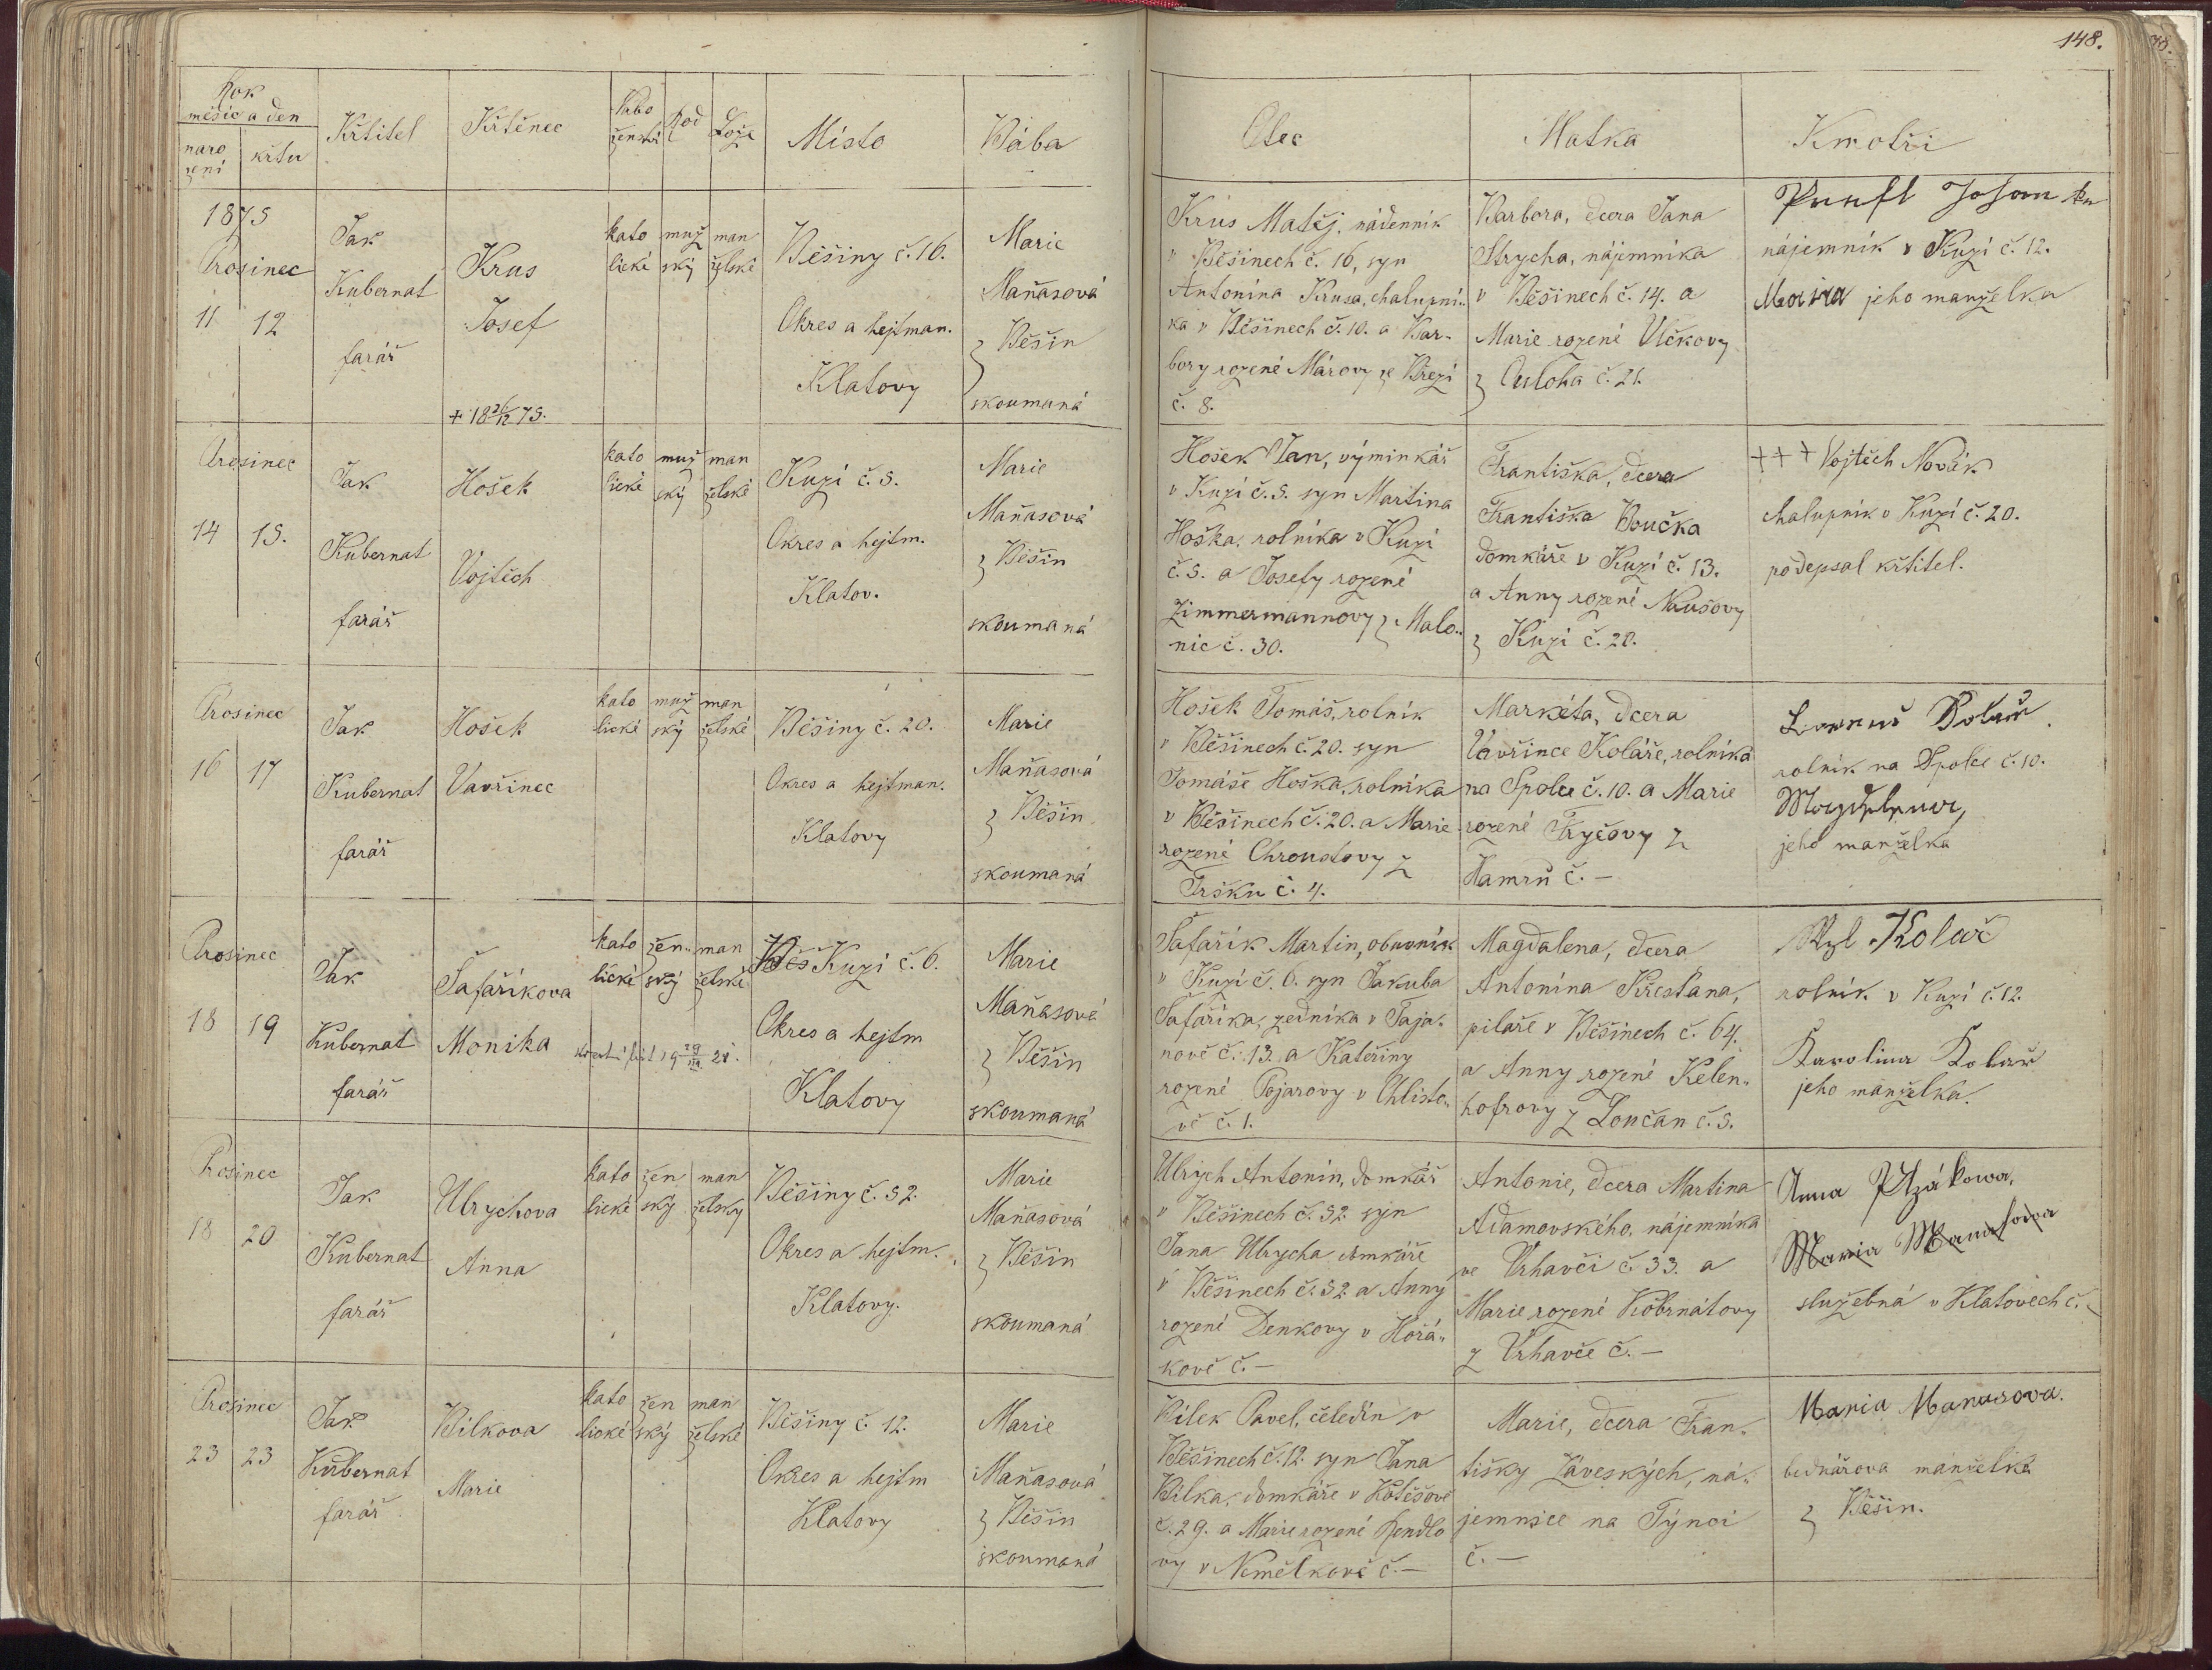 148.
Rok
měsíc a den
naro
zení
křtu
Křtitel
Křtěnec
Nábo
ženství
Lože
Místo
Bába
Otec
Matka
Kmotři
1875
Prosinec
11 12
Jak
Kubernat
farář
Krus
Josef
+ 18 26/12 75.
kato
lické
muž
ský
man
želské
Běšiny č. 16.
Okres a hejtman.
Klatovy
Marie
Maňasová
z Běšin
skoumaná
Krus Matěj, nádenník
v Běšinech č. 16, syn
Antonína Krusa, chalupní-
ka v Běšinech č. 10. a Bar-
bory rozené Márovy ze Březí
č. 8.
Barbora, dcera Jana
Strycha, nájemníka
v Běšinech č. 14. a
Marie rozené Vlčkovy
z č. 21.
nájemník v Kuzí č. 12.
jeho manželka
Prosinec
14 15.
Jak
Kubernat
farář
Hošek
Vojtěch
kato
lické
muž
ský
man
želské
Kuzí č. 5.
Okres a hejtm.
Klatov.
Marie
Maňasová
z Běšin
skoumaná
Hošek Jan, výminkář
v Kuzí č. 5. syn Martina
Hoška, rolníka v Kuzí
č. 5. a Josefy rozené
Zimmermannovy z Malo-
nic č. 30.
Františka, dcera
Františka Boučka
domkáře v Kuzí č. 13.
a Anny rozené
z Kuzí č. 20.
+++ Vojtěch Novák
chalupník v Kuzí č. 20.
podepsal křtitel.
Prosinec
16 17
Jak
Kubernat
farář
Hošek
Vavřinec
kato
lické
muž
ský
man
želské
Běšiny č. 20.
Okres a hejtman.
Klatovy
Marie
Maňasová
z Běšin
skoumaná
Hošek Tomáš, rolník
v Běšinech č. 20. syn
Tomáše Hoška, rolníka
v Běšinech č. 20. a Marie
rozené Chroustovy z
Tršku č. 4.
Markéta, dcera
Vavřince Koláře, rolníka
na Spolce č. 10. a Marie
rozené z
Hamrů č. —
rolník na Spolce č. 10.
jeho manželka
Prosinec
18 19
Jak
Kubernat
farář
Šafaříkova
Monika
kato
lické
žen-
ský
man
želské
Běš Kuzí č. 6.
Okres a hejtm
Klatovy
Marie
Maňasová
z Běšin
skoumaná
Šafařík Martin, obuvník
v Kuzí č. 6. syn Jakuba
Šafaříka, zedníka v Taja-
nově č. 13. a Kateřiny
rozené Pojarovy v Chlisto-
vě č. 1.
Magdalena, dcera
Antonína Křesťana,
pilaře v Běšinech č. 64.
a Anny rozené Kelen-
hofrovy z Loučan č. 5.
Kolář
rolník v Kuzí č. 12.
Karolina Kolař
jeho manželka.
Prosinec
18 20
Jak
Kubernat
farář
Ulrychova
Anna
kato
lické
žen
ský
man
želský
Běšiny č. 52.
Okres a hejtm.
Klatovy.
Marie
Maňasová
z Běšin
skoumaná
Ulrych Antonín, domkář
v Běšinech č. 52 syn
Jana Ulrycha domkáře
v Běšinech č. 52 a Anny
rozené Denkovy v Hořá-
kově č. —
Antonie, dcera Martina
Adamovského, nájemníka
ve Vrhavči č. 33. a
Marie rozené Kobrnátovy
z Vrhavče č. —
Anna Ptzákowa,
Maria Manasowa
služebná v Klatovech č. —
Prosinec
23 23
Jak
Kubernat
farář
Bílkova
Marie
kato
lické
žen
ský
man
želské
Běšiny č. 12.
Okres a hejtm
Klatovy
Marie
Maňasová
z Běšin
skoumaná
Bílek Pavel, čeledín v
Běšinech č. 12. syn Jana
Bílka, domkáře v
č. 29. a Marie rozené
vy v Nemělkově č. —
Marie, dcera Fran-
tišky Záveských, ná-
jemnice na Týnci
č. —
Maria Manasova.
bednářova manželka
z Běšin.